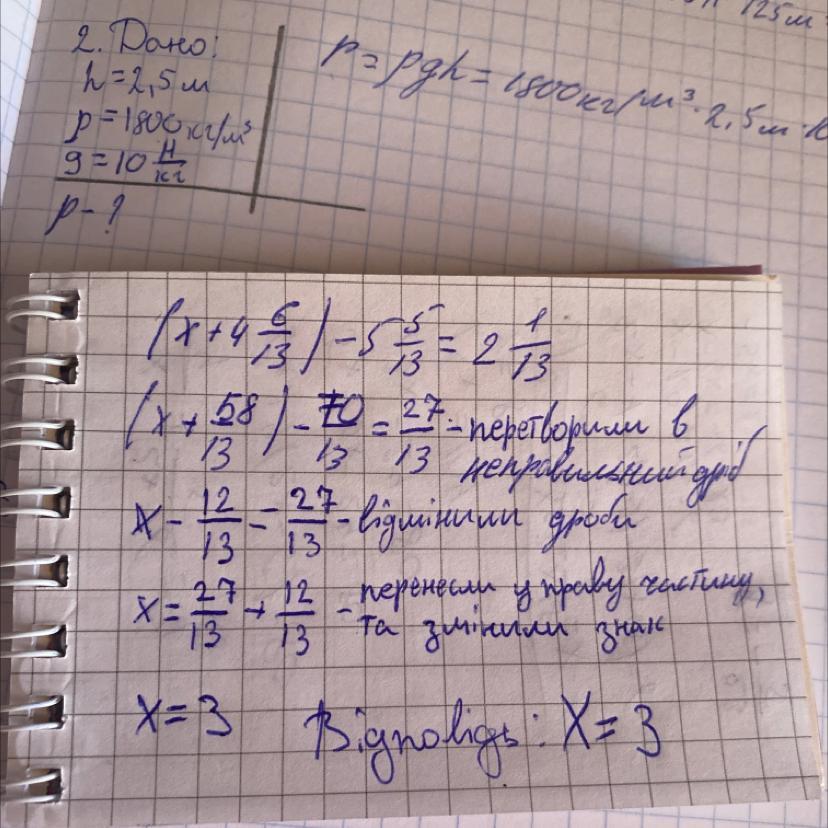 125м
2. Дано:
h=2,5м
p=1800кг/м³
g=10 Н/кг
p-?
p=pgh=1800кг/м³·2,5м·10
(x+4 6/13)-5 5/13=2 1/13
(x+58/13)-70/13=27/13-перетворили в
неправильний дріб
x-12/13=27/13-відмінили дроби
x=27/13+12/13-перенесли у праву частину,
та змінили знак
x=3 Відповідь: X=3